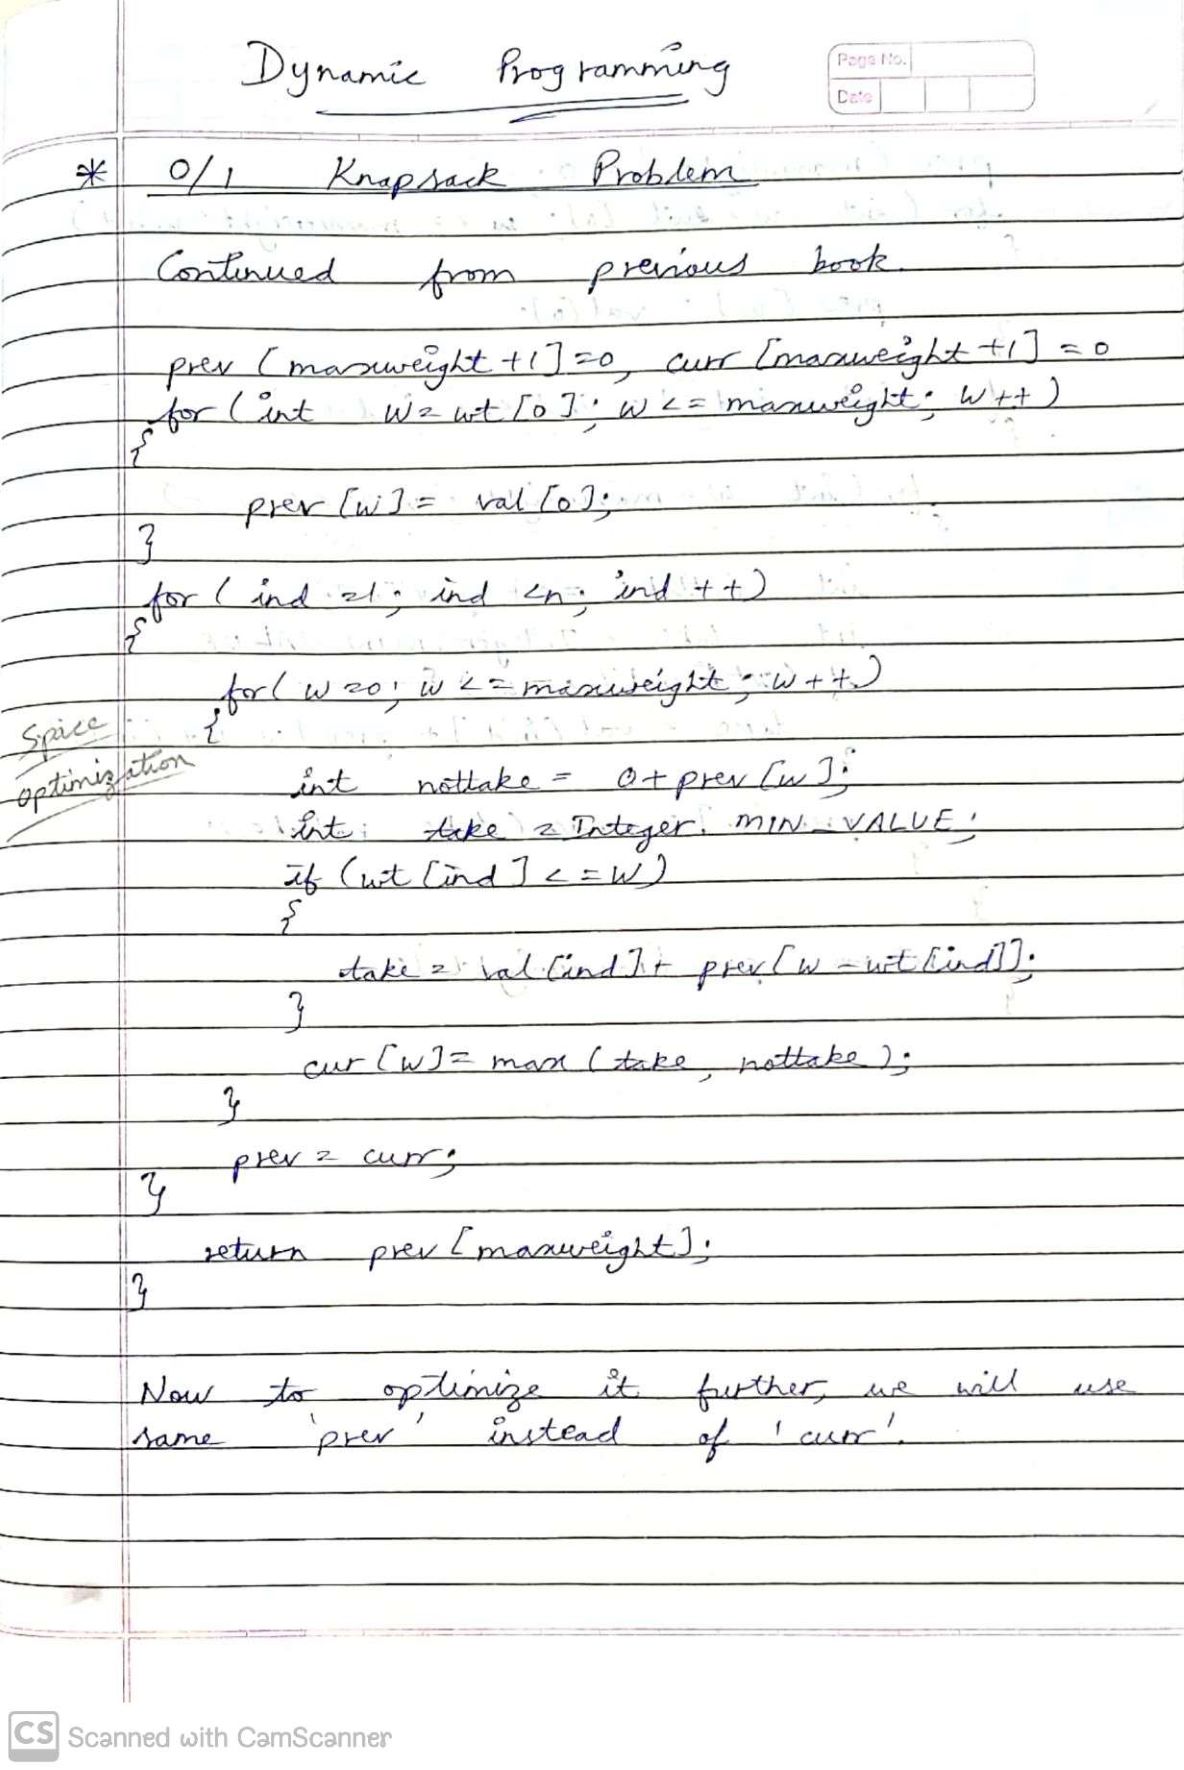 Dynamic Programming
Page No.
Date
* 0/1 Knapsack Problem
Continued from previous book.
prev [maxweight +1]=0, curr [maxweight +1] = 0
for (int W = wt [0]; w <= maxweight; W++)
{
prev [w] = val [0];
}
for ( ind =1; ind <n; ind ++)
{
for( w =0; w <= maxweight; w++)
{
Space
optimization
int nottake = 0+ prev [w];
int take = Integer. MIN_VALUE;
if (wt [ind] <= W)
{
take = val [ind]+ prev [w - wt [ind]];
}
cur [w]= max (take, nottake);
}
prev = curr;
}
return prev [maxweight];
}
Now to optimize it further, we will use
same 'prev' instead of 'curr'.
CS Scanned with CamScanner